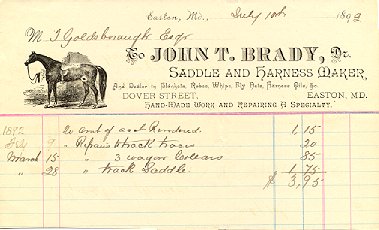 Easton, Md., July 10th 1892
M T Goldsborough Esqr
To JOHN T. BRADY, Dr.
SADDLE AND HARNESS MAKER,
And Dealer in Blankets, Robes, Whips, Fly Nets, Harness Oils, &c.
DOVER STREET, EASTON, MD.
HAND-MADE WORK AND REPAIRING A SPECIALTY.
1892 To amt of acct Rendered. 1 15
9 " Repairs track traces 20
March 15 " 3 wagon Collars 85
" 28 " track Saddle. 1 75
$ 3,95